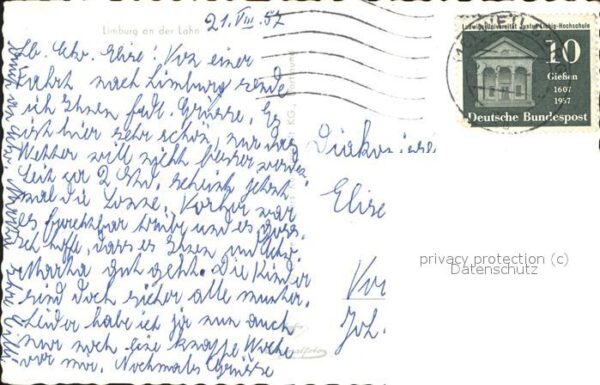 Limburg an der Lahn
21. VIII. 57
Lb. Schw. Elise! Von einer
Fahrt nach Limburg sende
ich Ihnen Grüsse. Es
ist hier sehr schön, nur das
Wetter will nicht besser werden
Seit ca 2 Std. scheint jetzt
mal die Sonne. Vorher war
es furchtbar trüb und es goss.
Ich hoffe, dass es Ihnen und Schw.
Martha gut geht. Die Kinder
sind doch sicher alle munter.
Leider habe ich ja nun auch
nur noch eine knappe Woche
vor mir. Nochmals Grüsse
Diakonisse
Elise
Joh.
Ludwigs-Universität Justus Liebig-Hochschule
10
Gießen
1607
1957
Deutsche Bundespost
privacy protection (c)
Datenschutz